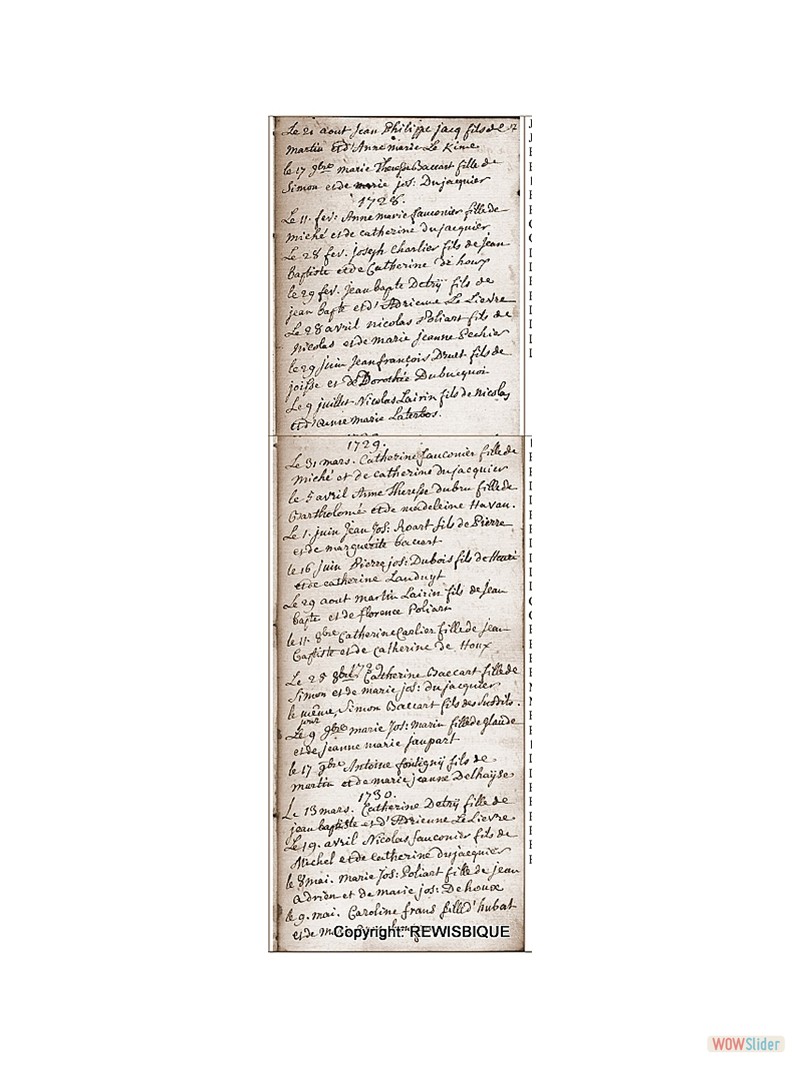 Le 21 aout Jean Philippe jacq fils de
martin et d'Anne marie Le Kime
le 17 9bre marie Therese Baccart fille de
Simon et de marie jos: Dujacquier
1728.
Le 11. fev: Anne marie fauconier fille de
miché et de catherine dujacquier
Le 28 fev. joseph Charlier fils de jean
Baptiste et de Catherine de houx
le 29 fev. jean bapte Detrÿ fils de
jean bapte et d'Adrienne Le Lievre
Le 28 avril nicolas Poliart fils de
Nicolas et de marie jeanne Pechier
le 29 juin Jean francois Druet fils de
et de Dorothée Dubucquoi
Le 9 juillet Nicolas Lairin fils de Nicolas
et d'Anne marie Laterbos.
1729.
Le 31 mars. Catherine fauconier fille de
miché et de catherine dujacquier
le 5 avril Anne Therese dubru fille de
Bartholomé et de madeleine Havau.
Le 1. juin Jean Jos: Roart fils de Pierre
et de marguerite baccart
le 16 juin Pierre jos: Dubois fils de Henri
et de catherine Landuyt
Le 29 aout martin Lairin fils de Jean
bapte et de florence Poliart
le 11. 8bre Catherine Carlier fille de jean
Baptiste et de Catherine de Houx
Le 28 8bre 1729 Catherine Baccart fille de
Simon et de marie jos: dujacquier
le même jour Simon Baccart fils des Susdits.
Le 9 9bre marie Jos: Marin fille de glaude
et de jeanne marie jaupart
le 17 9bre Antoine fontignÿ fils de
martin et de marie jeanne Delhaÿse
1730.
Le 13 mars. Catherine Detrÿ fille de
jean baptiste et d'Adrienne Le Lievre
Le 19. avril Nicolas fauconier fils de
Michel et de catherine dujacquier
le 8 mai. Marie Jos: Poliart fille de jean
adrien et de marie jos: Dehoux
le 9. mai. Caroline frans fille d'hubat
et de
Copyright: REWISBIQUE
WOWSlider